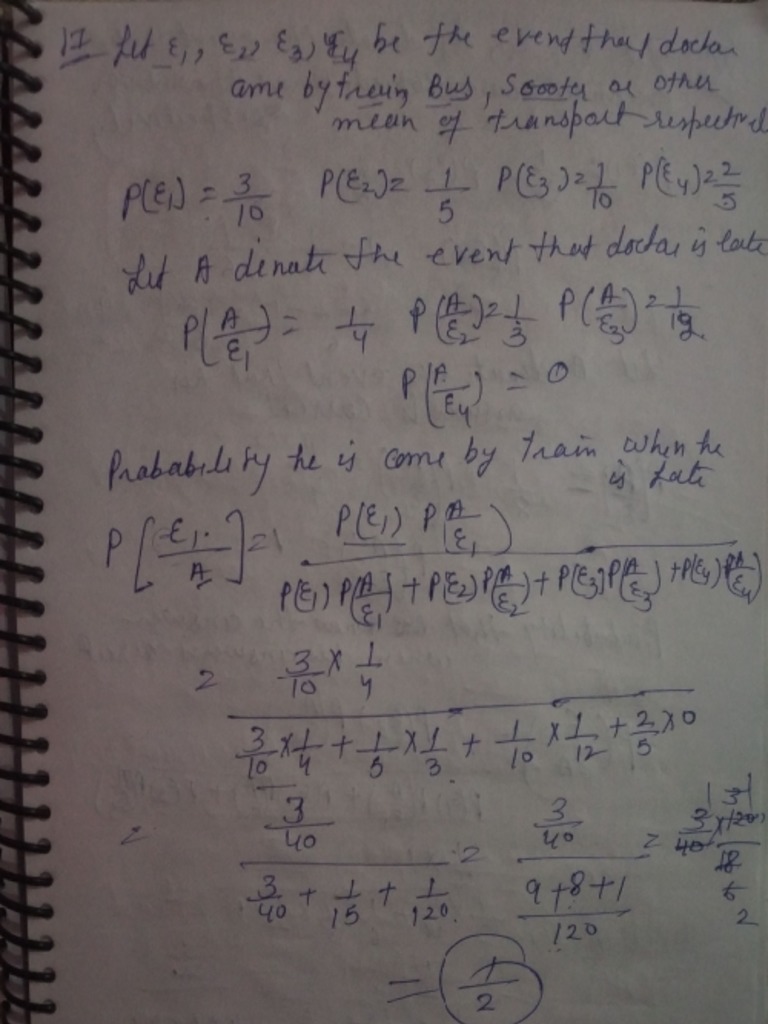 17 Let E1, E2, E3, E4 be the event that doctor
ame by train, Bus, Scooter or other
mean of transport respectivel
P(E1) = 3/10 P(E2) = 1/5 P(E3) = 1/10 P(E4) = 2/5
Let A denate the event that doctor is late
P(A/E1) = 1/4 P(A/E2) = 1/3 P(A/E3) = 1/12
P(A/E4) = 0
Probability he is come by train when he
is late
P[E1/A] = P(E1) P(A/E1) / P(E1) P(A/E1) + P(E2) P(A/E2) + P(E3) P(A/E3) + P(E4) P(A/E4)
= 3/10 × 1/4 / 3/10 × 1/4 + 1/5 × 1/3 + 1/10 × 1/12 + 2/5 × 0
= 3/40 / 3/40 + 1/15 + 1/120 = 3/40 / 9+8+1/120 = 3/40 × 120/18
= 1/2